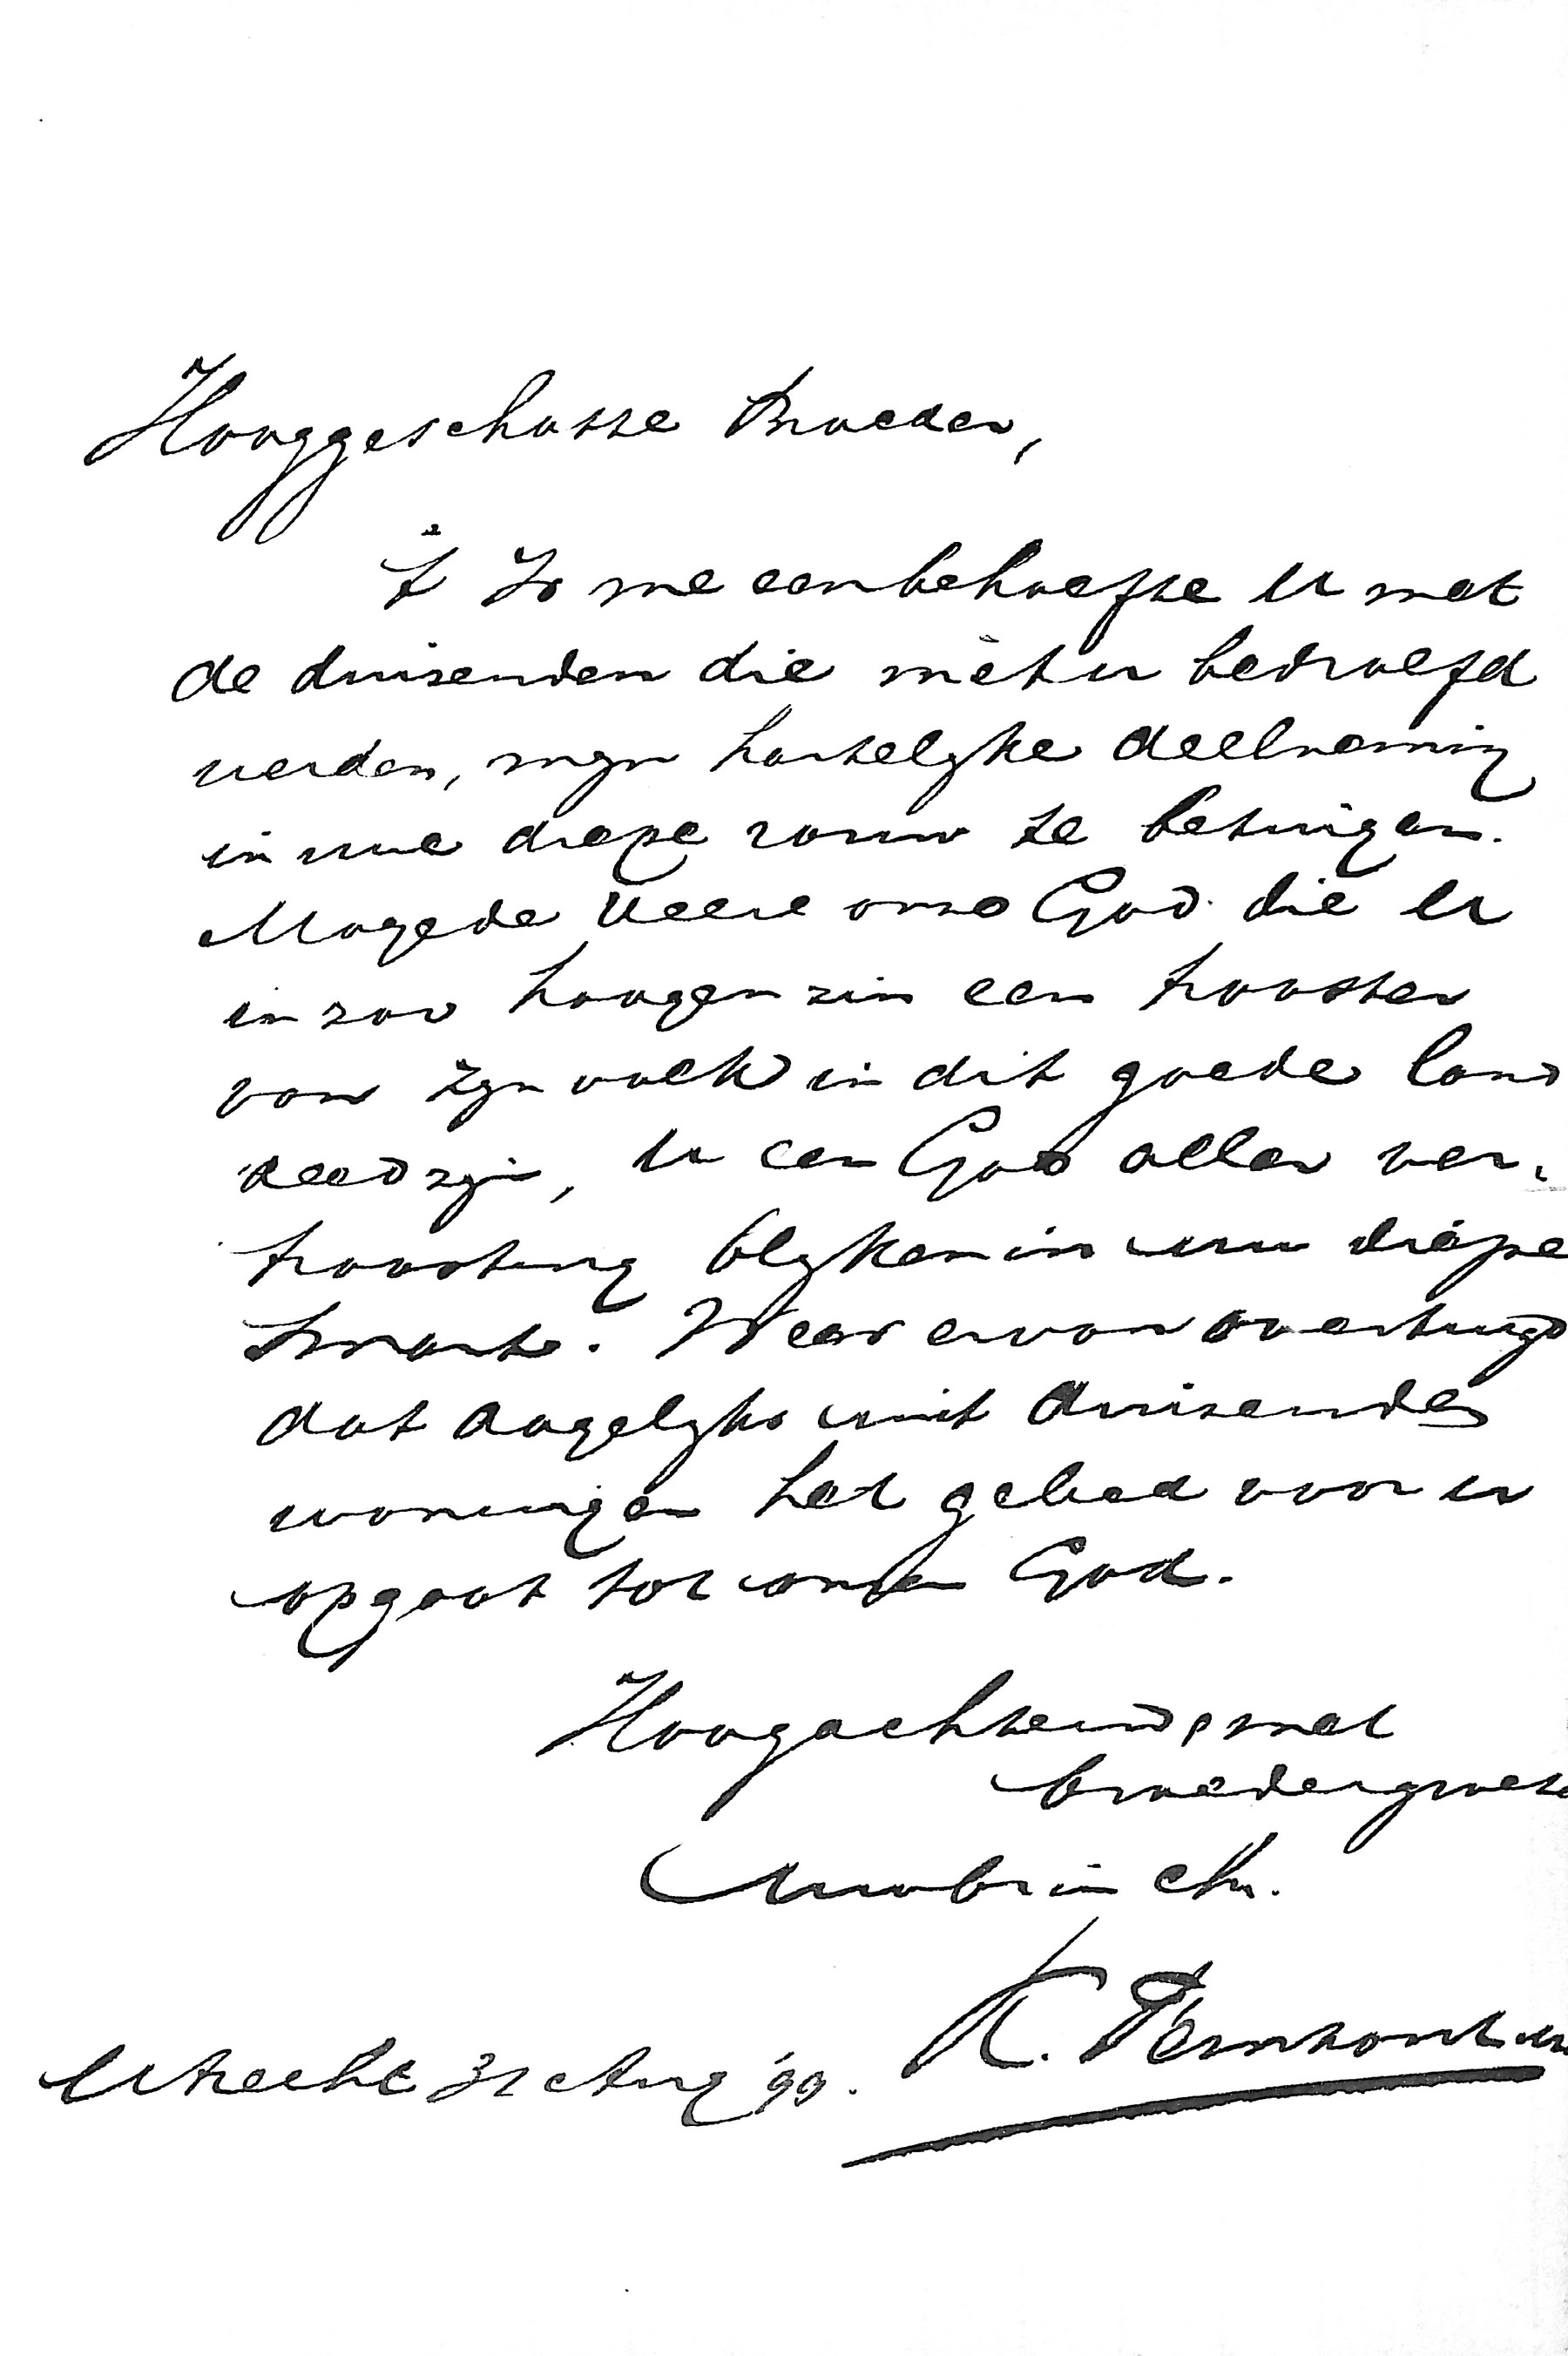 Hooggeschatte Broeder,
't Is me een behoefte U met
de duizenden die mèt u bedroefd
werden, mijn hartelijke deelneming
in uwe diepe rouw te betuigen.
Moge de Heere onze God die U
in zoo hoogen zin een trooster
van zijn volk in dit goede land
deed zijn, U een God aller ver-
troosting blijken in uw diepe
smart. Wees ervan overtuigd
dat dagelijks uit duizenden
woningen het gebed voor u
opgaat tot onzen God.
Hoogachtend, met
broedergroet
Uw br in Chr.
K. Fernhout
Utrecht 31 Aug '99.